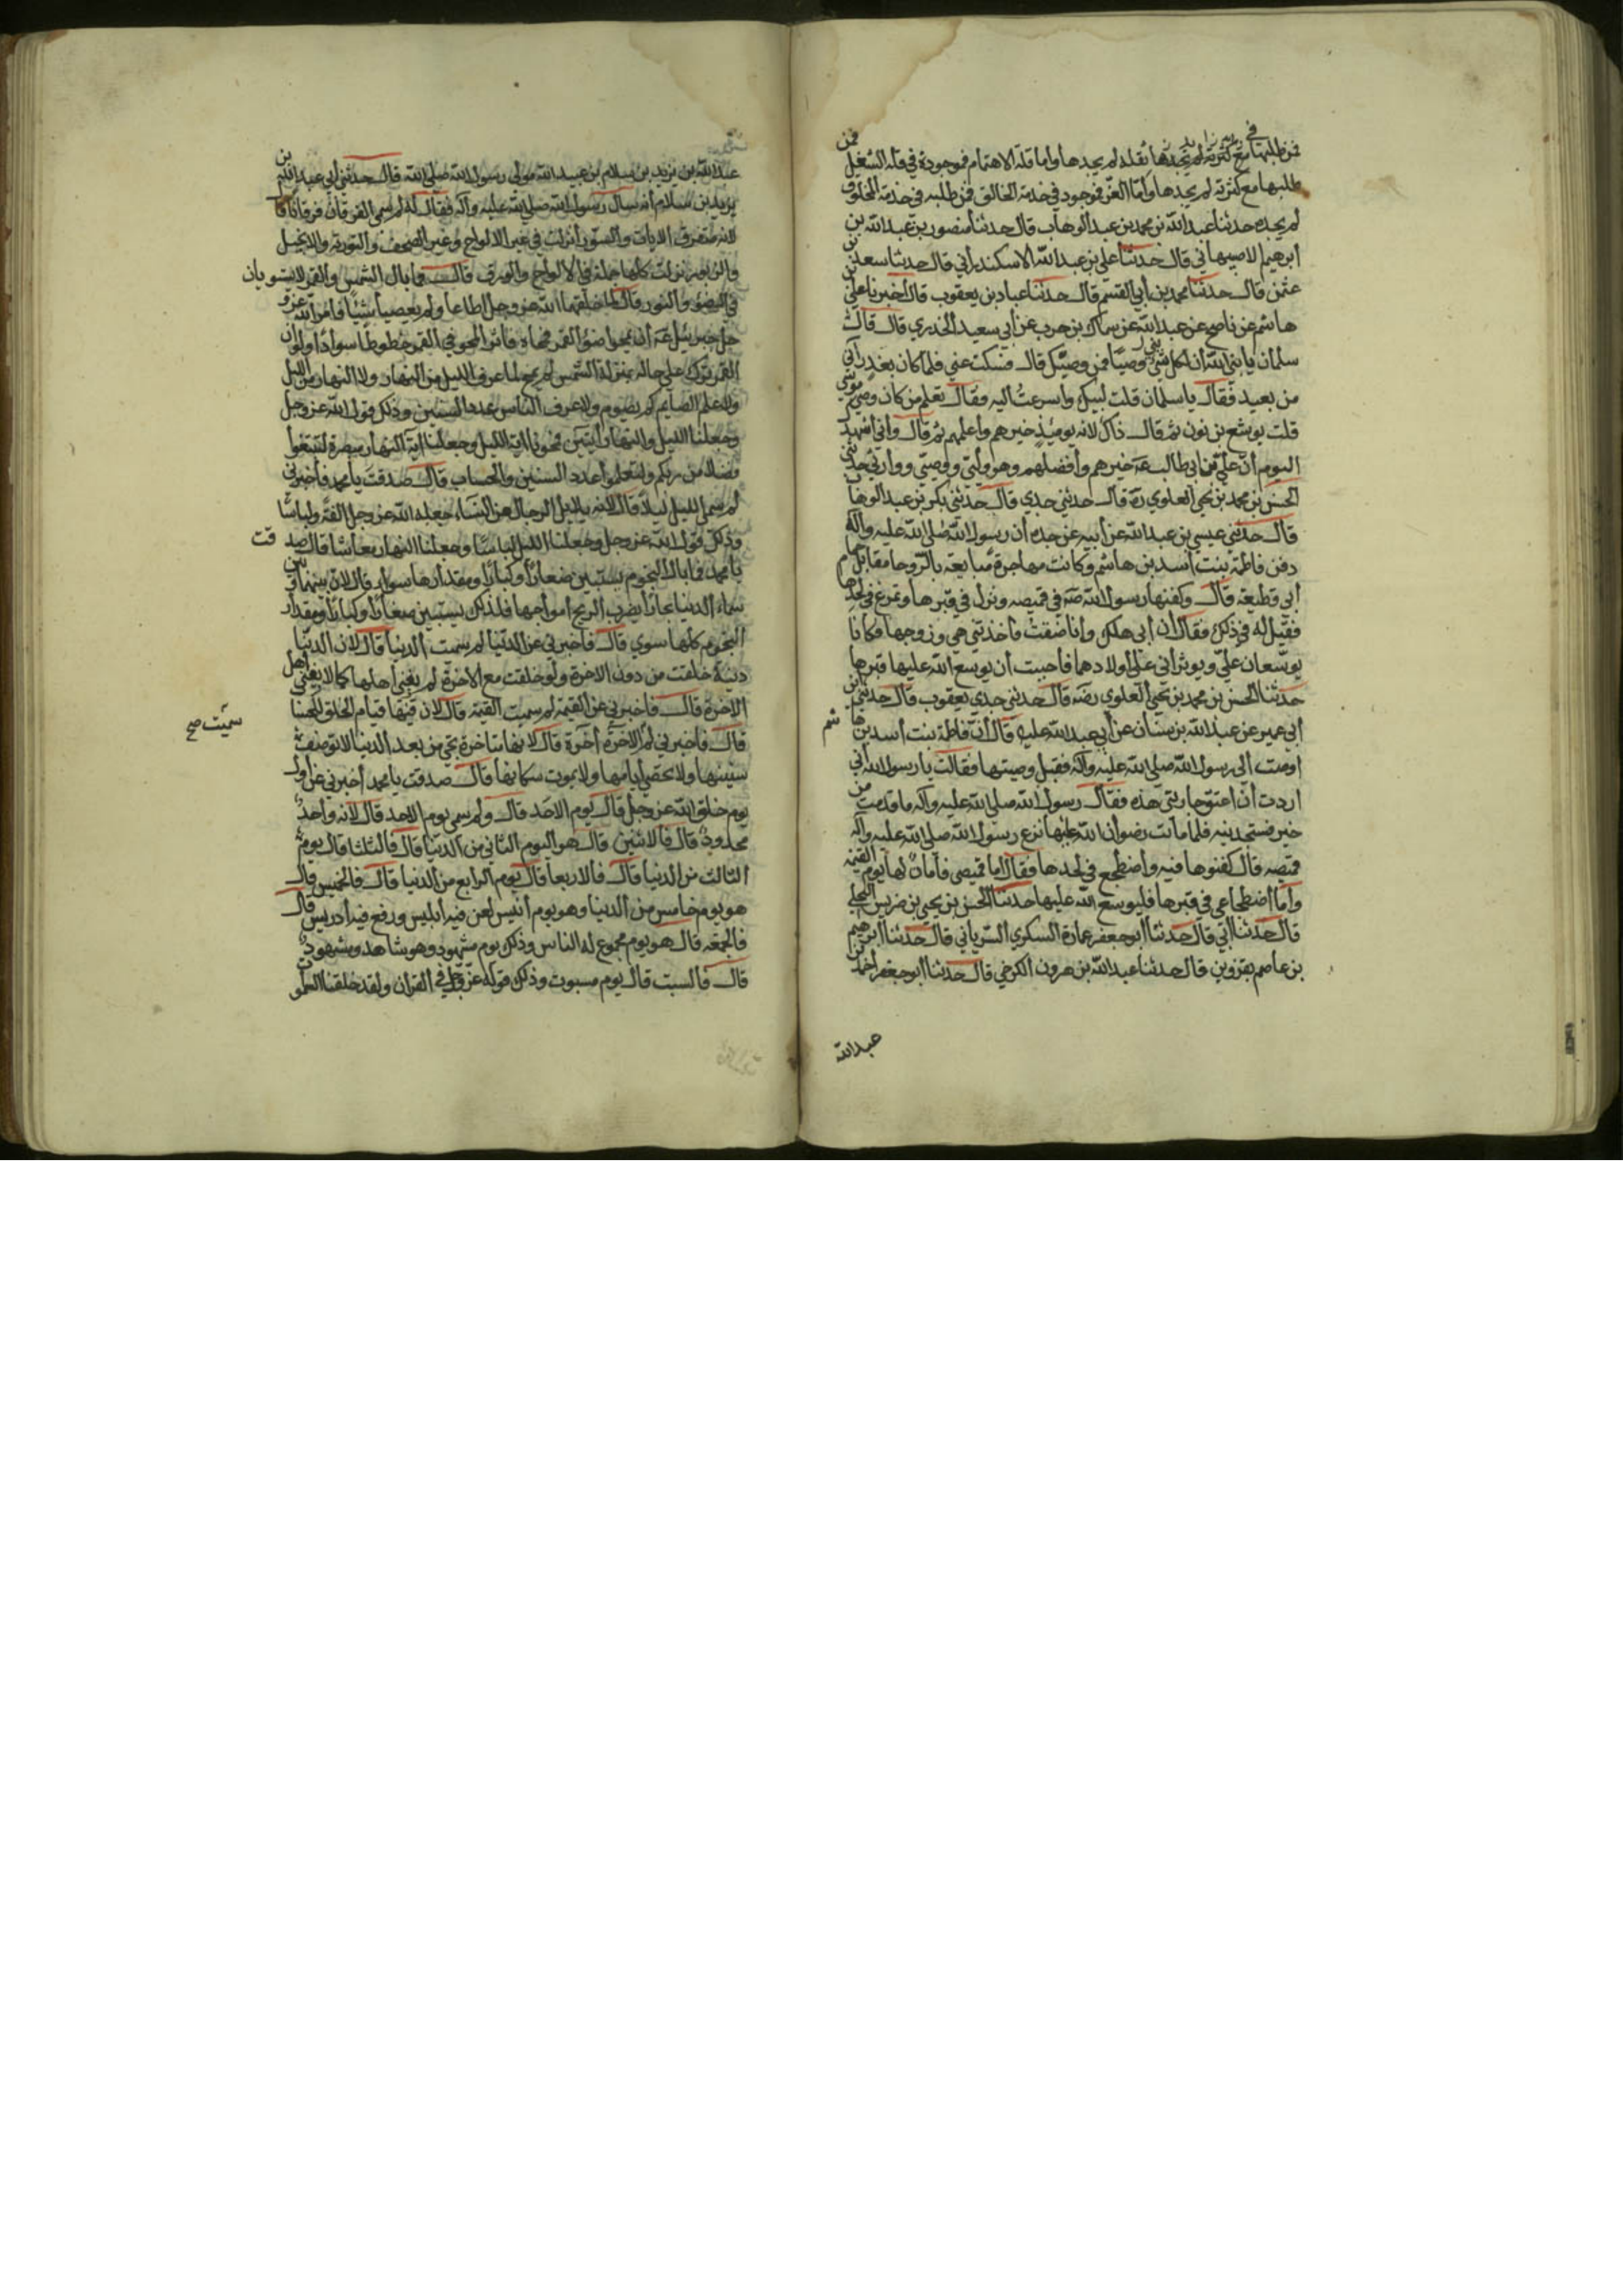 فمن طلبها مع كثرته لم يجدها واما قلة الاهتمام فموجودة في قلة الشغل فمن
طلبها مع كثرته لم يجدها واما العز فموجود في خدمة الخالق فمن طلبه في خدمة المخلوق
لم يجده حدثنا عبد الله بن محمد بن عبد الوهاب قال حدثنا منصور بن عبد الله بن
ابرهيم الاصبهاني قال حدثنا علي بن عبد الله الاسكندراني قال حدثنا سعد بن
عثمن قال حدثنا محمد بن ابي القسم قال حدثنا عباد بن يعقوب قال اخبرنا علي بن
هاشم عن ناصح عن عبد الله عن سماك بن حرب عن ابي سعيد الخدري قال قال
سلمان يا نبي الله ان لكل نبي وصيا فمن وصيك قال فسكت عني فلما كان بعد راني
من بعيد فقال يا سلمان قلت لبيك واسرعت اليه فقال تعلم من كان وصي موسى
قلت يوشع بن نون ثم قال ذاك لانه يومئذ خيرهم واعلمهم ثم قال واني اشهد
اليوم ان علي بن ابي طالب عه خيرهم وافضلهم وهو وليي ووصيي ووارثي حدثني
الحسن بن محمد بن يحيى العلوي ره قال حدثني جدي قال حدثني بكر بن عبد الوهاب
قال حدثني عيسى بن عبد الله عن ابيه عن جده ان رسول الله صلى الله عليه وآله
دفن فاطمة بنت اسد بن هاشم وكانت مهاجرة مبايعة بالروحا مقابل حمام
ابي قطيعة قال وكفنها رسول الله صه في قميصه ونزل في قبرها وتمرغ في لحدها
فقيل له في ذلك فقال ان ابي هلك وانا صغير فاخذتني هي وزوجها فكانا
يوسعان علي ويوثراني على اولادهما فاحببت ان يوسع الله عليها قبرها
حدثنا الحسن بن محمد بن يحيى العلوي رضه قال حدثني جدي يعقوب قال حدثني ابن
ابي عمير عن عبد الله بن سنان عن ابي عبد الله عليه قال ان فاطمة بنت اسد بن هاشم
اوصت الى رسول الله صلى الله عليه وآله فقبل وصيتها فقالت يا رسول الله اني
اردت ان اعتق جاريتي هذه فقال رسول الله صلى الله عليه وآله ما قدمت من
خير فستجدينه فلما ماتت رضوان الله عليها نزع رسول الله صلى الله عليه وآله
قميصه قال كفنوها فيه واضطجع في لحدها فقال اما قميصي فامان لها يوم القيمة
واما اضطجاعي في قبرها فليوسع الله عليها حدثنا الحسن بن يحيى بن ضريس البجلي
قال حدثنا ابي قال حدثنا ابو جعفر عمارة السكري السرياني قال حدثنا ابرهيم
بن عاصم بقزوين قال حدثنا عبد الله بن هرون الكرخي قال حدثنا ابو جعفر احمد بن
عبد الله
عبد الله بن يزيد بن سلام بن عبيد الله مولى رسول الله صلى الله قال حدثني ابي عبد الله بن
يزيد بن سلام انه سال رسول الله صلى الله عليه وآله فقال له لم سمي الفرقان فرقانا قال
لانه متفرق الايات والسور انزلت في غير الالواح وغير الصحف والتورية والانجيل
والزبور نزلت كلها جملة في الالواح والورق قال فما بال الشمس والقمر لا يستويان
في الضوء والنور قال لما خلقهما الله عز وجل اطاعا ولم يعصيا شيئا فامر الله عز و
جل جبرئيل عه ان يمحو ضوء القمر فمحاه فاثر المحو في القمر خطوطا سوداء ولو ان
القمر ترك على حاله بمنزلة الشمس لم يمح لما عرف الليل من النهار ولا النهار من الليل
ولا علم الصايم كم يصوم ولا عرف الناس عدد السنين وذلك قول الله عز وجل
وجعلنا الليل والنهار ايتين فمحونا اية الليل وجعلنا اية النهار مبصرة لتبتغوا
فضلا من ربكم ولتعلموا عدد السنين والحساب قال صدقت يا محمد فاخبرني
لم سمي الليل ليلا قال لانه يلايل الرجال من النساء جعله الله عز وجل الفة ولباسا
وذلك قول الله عز وجل وجعلنا الليل لباسا وجعلنا النهار معاشا قال صدقت
يا محمد فما بال النجوم تستبين صغارا وكبارا ومقدارها سواء قال لان بينها وبين
سماء الدنيا بحارا يضرب الريح امواجها فلذلك يستبين صغارا وكبارا ومقدار
النجوم كلها سوى قال فاخبرني عن الدنيا لم سميت الدنيا قال لان الدنيا
دنية خلقت من دون الاخرة ولو خلقت مع الاخرة لم يفن اهلها كما لا يفنى اهل
الاخرة قال فاخبرني عن القيمة لم سميت القيمة قال لان فيها قيام الخلق للحساب
قال فاخبرني لم الاخرة اخرة قال لانها متاخرة تجي من بعد الدنيا لا توصف
سميت صح
سنينها ولا تحصى ايامها ولا يموت سكانها قال صدقت يا محمد اخبرني عن اول
يوم خلق الله عز وجل قال يوم الاحد قال ولم سمي يوم الاحد قال لانه واحد
محدود قال فالاثنين قال هو اليوم الثاني من الدنيا قال فالثلثا قال يوم
الثالث من الدنيا قال فالاربعا قال يوم الرابع من الدنيا قال فالخميس قال
هو يوم خامس من الدنيا وهو يوم انيس لعن فيه ابليس ورفع فيه ادريس قال
فالجمعة قال هو يوم مجموع له الناس وذلك يوم مشهود وهو شاهد ومشهود
قال فالسبت قال يوم مسبوت وذلك قوله عز وجل في القران ولقد خلقنا السموت